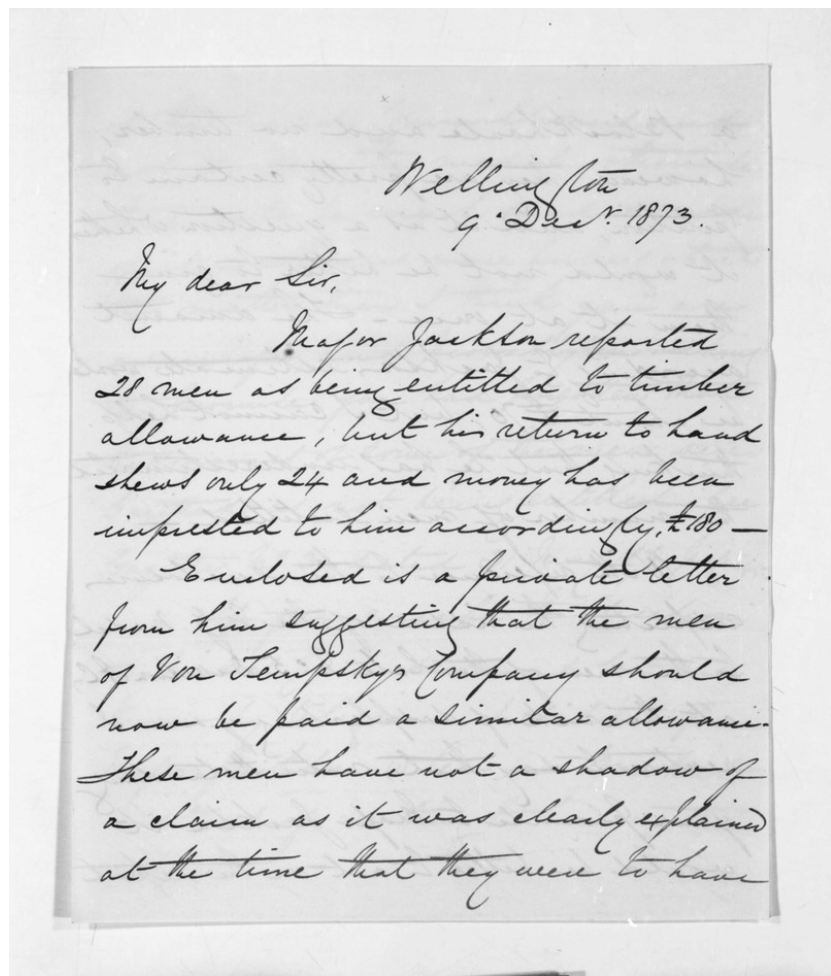 Wellington
9 Decr. 1873.
My dear Sir,
Major Jackson reported
28 men as being entitled to timber
allowance, but his return to hand
shews only 24 and money has been
imprested to him accordingly, £180 —
Enclosed is a private letter
from him suggesting that the men
of Von Tempskys Company should
now be paid a similar allowance.
These men have not a shadow of
a claim as it was clearly explained
at the time that they were to have